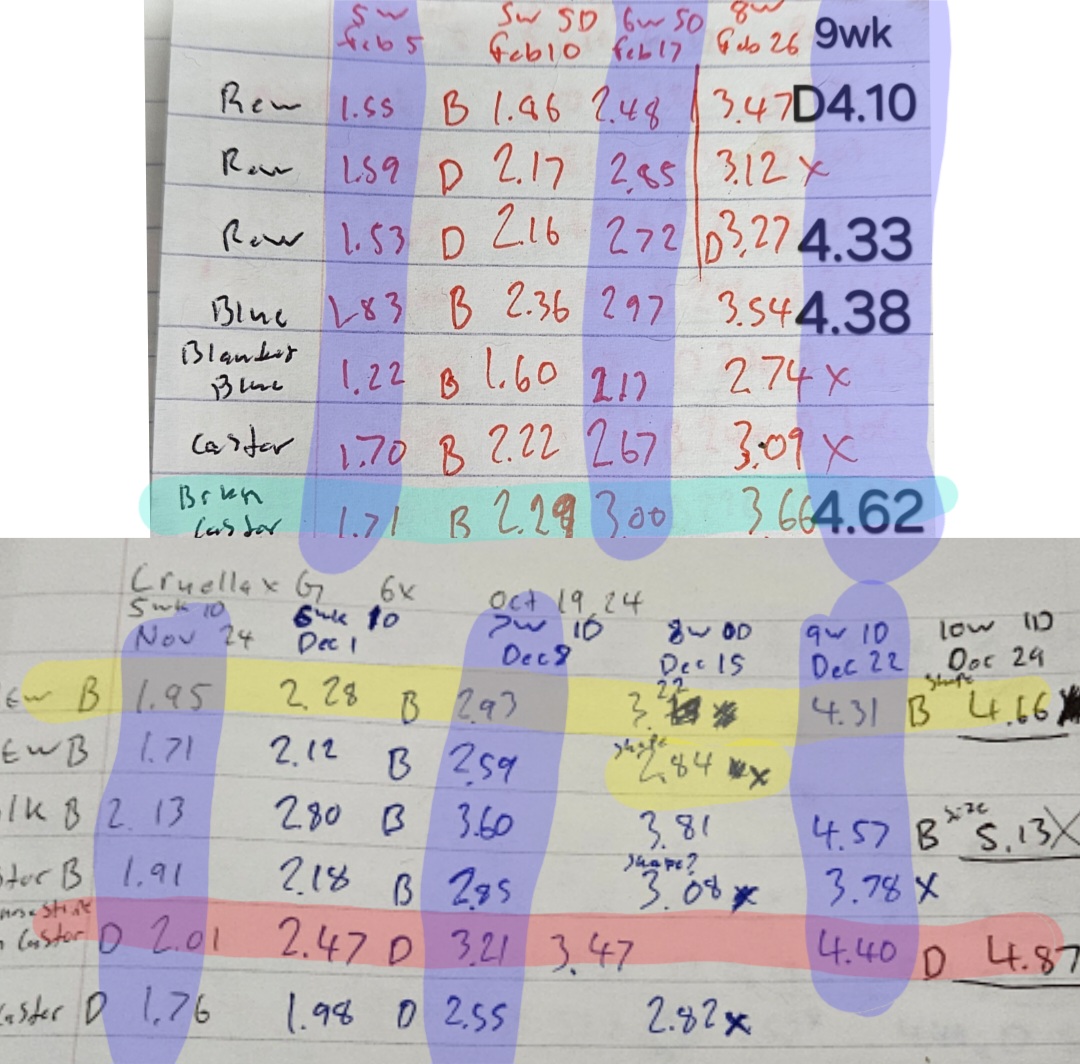 5w 5w 5D 6w 5D 8w 9wk
Feb 5 Feb 10 Feb 17 Feb 26
Rew 1.55 B 1.96 2.48 3.47 D4.10
Rew 1.59 D 2.17 2.85 3.12 x
Rew 1.53 D 2.16 2.72 D 3.27 4.33
Blue 1.83 B 2.36 2.97 3.54 4.38
Blanket
Blue 1.22 B 1.60 2.17 2.74 x
Castor 1.70 B 2.22 2.67 3.09 x
Brkn
Castor 1.71 B 2.29 3.00 3.66 4.62
Cruella x G 6x Oct 19, 24
5wk 1D 6wk 1D 7w 1D 8w 0D 9w 1D 10w 1D
Nov 24 Dec 1 Dec 8 Dec 15 Dec 22 Dec 29
Ew B 1.95 2.28 B 2.93 3.22 4.31 B shape 4.66
Ew B 1.71 2.12 B 2.59 shape 2.84 x
lk B 2.13 2.80 B 3.60 3.81 4.57 B size 5.13 X
stor B 1.91 2.18 B 2.85 shape? 3.08 x 3.78 x
Castor D 2.01 2.47 D 3.21 3.47 4.40 D 4.87
aster D 1.76 1.98 D 2.55 2.82 x